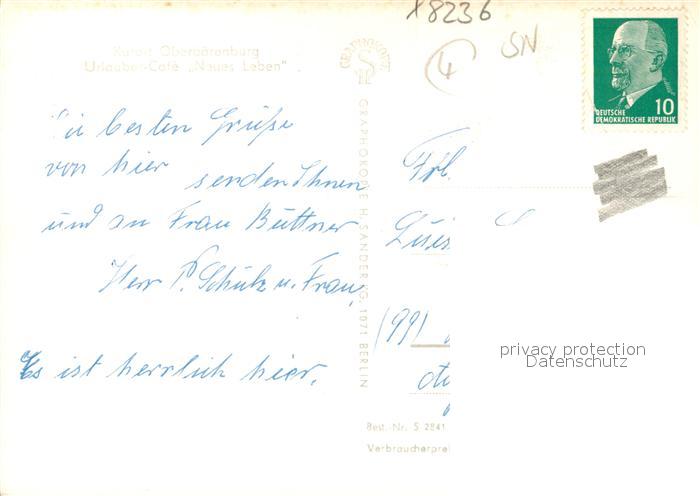 x8236
4
SN
Kurort Oberbärenburg
Urlauber-Café „Neues Leben"
GRAPHOKOPIE
10
DEUTSCHE
DEMOKRATISCHE REPUBLIK
Die besten Grüße
von hier senden Ihnen
und an Frau Büttner
Herr P. Schulz u. Frau,
Es ist herrlich hier.
GRAPHOKOPIE H. SANDER KG, 1071 BERLIN
Frl.
Luis
(99)
privacy protection
Datenschutz
Best.-Nr. S 2841
Verbraucherprei